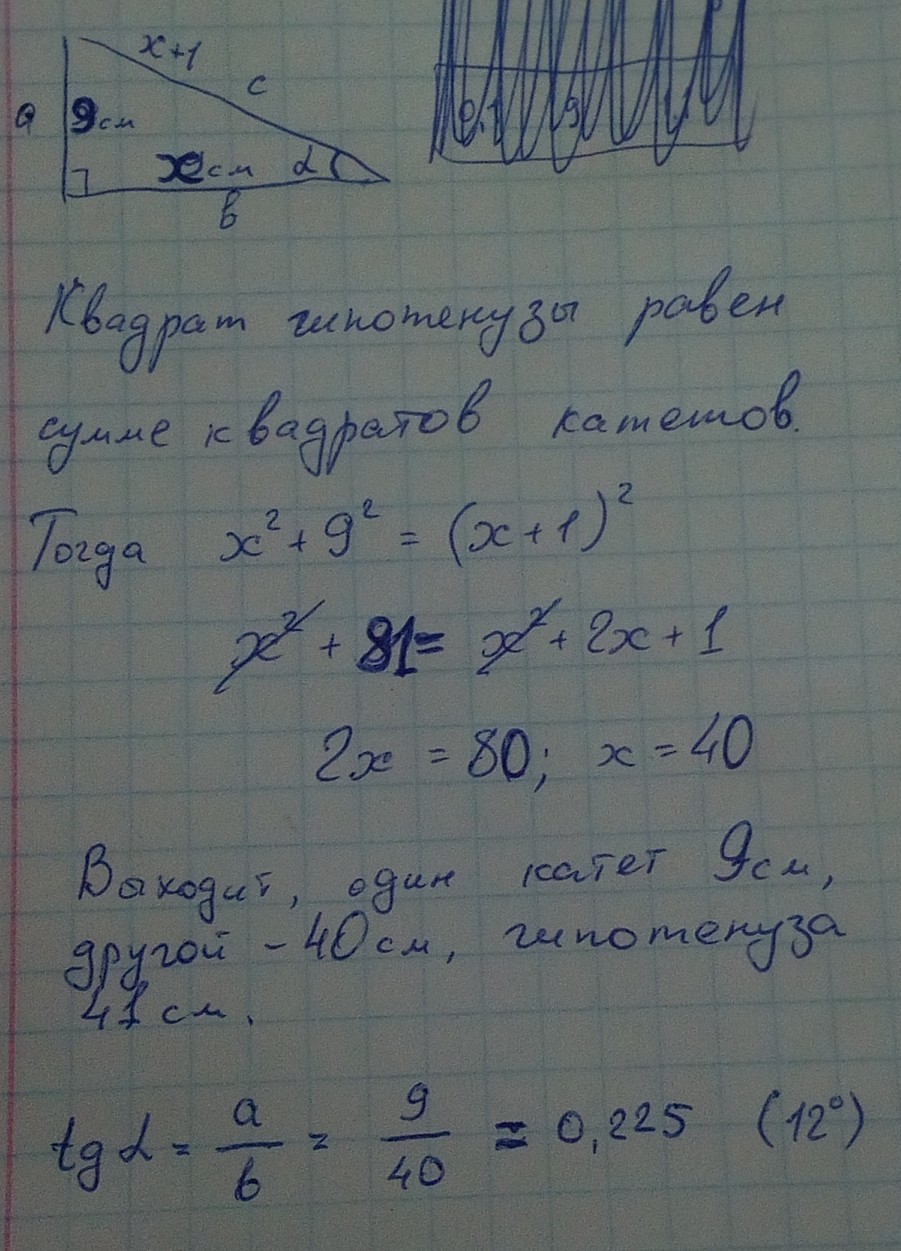 x+1
c
a
9см
xсм
α
b
Квадрат гипотенузы равен
сумме квадратов катетов.
Тогда x² + 9² = (x+1)²
x² + 81 = x² + 2x + 1
2x = 80; x = 40
Выходит, один катет 9см,
другой - 40см, гипотенуза
41 см.
tg α = a/b = 9/40 = 0,225 (12°)